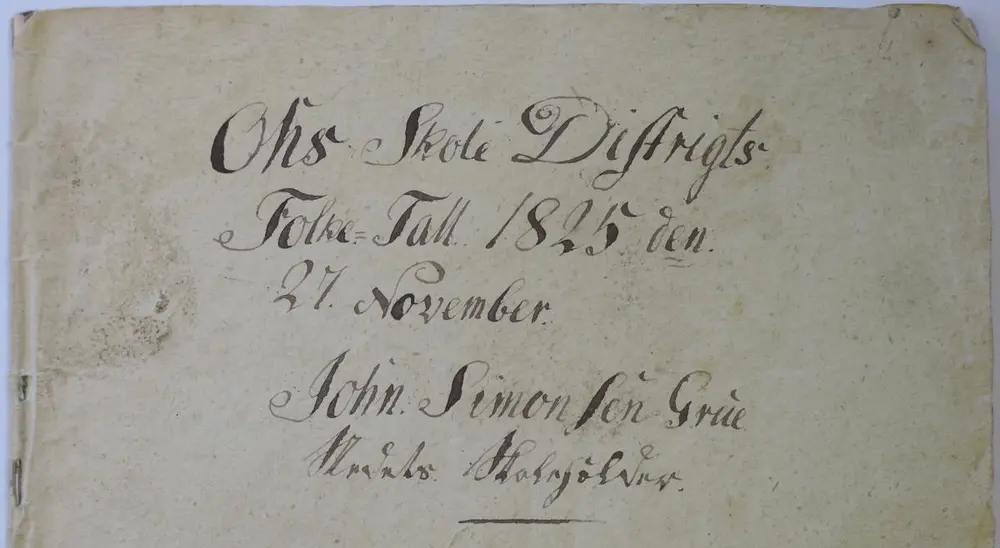 Ohs Skole Distrigts
Folke=Tall 1825 den.
27. November.
John Simonsen Grue
Stedets Skoleholder.